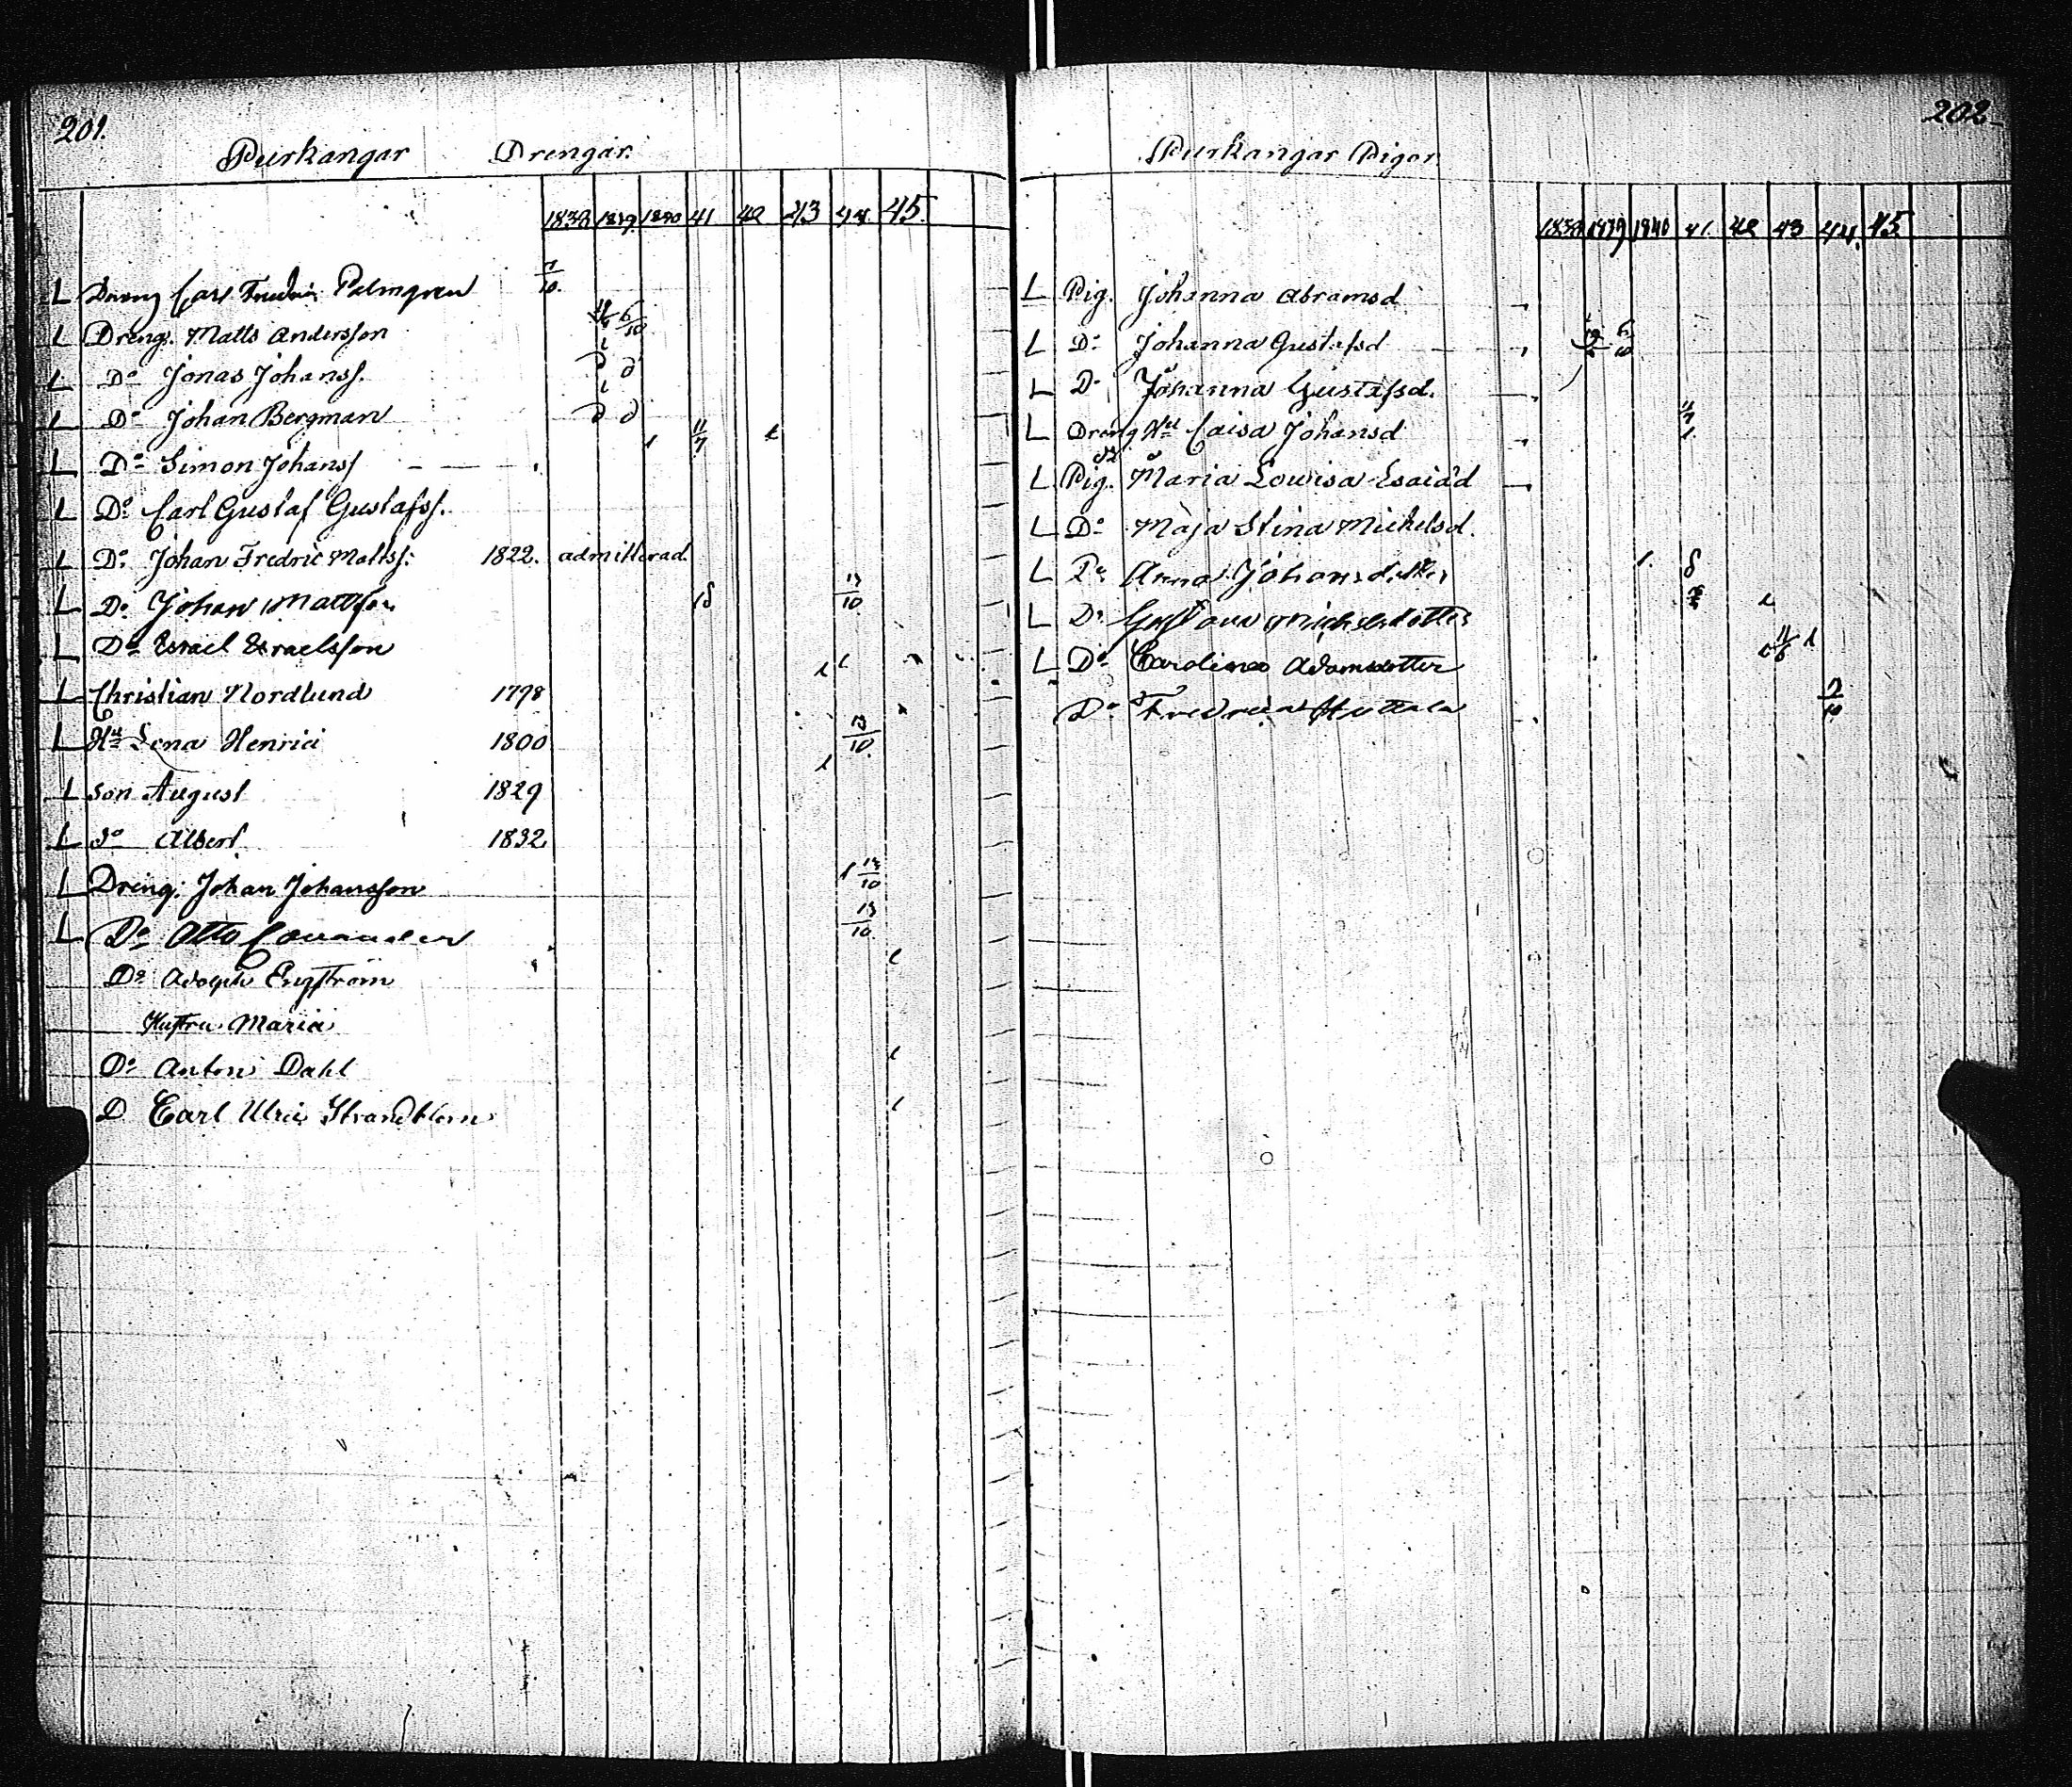 201.
Purkangar Drengar.
1838 1839 1840 41 42 43 44. 45.
L Dreng Carl Fredric Palmgren 7/10.
L Dreng. Matts Andersson 6/10
L Do Jonas Johanss. d d
L Do Johan Bergman d d
L Do Simon Johanss 11/7
L Do Carl Gustaf Gustafss.
L Do Johan Fredric Mattss: 1822. admitterad.
L Do Johan Mattsson 13/10
L Do Israel Israelsson
L Christian Nordlund 1798
L Hu Lena Henrici 1800 13/10
L Son August 1829
L Do Albert 1832
L Dreng: Johan Johansson 13/10
L Do Otto 13/10
Do Adolph Engström
Hustru Maria
Do Anton Dahl
D Carl Ulric Strandblom
202
Purkangar Pigor
1838 1839 1840 41. 42 43 44. 45
L Pig. Johanna Abramsd
L Do Johanna Gustafsd 6/10
L Do Johanna Gustafsd.
L Dreng Hu Caisa Johansd 11/7
L Pig. Maria Lowisa Esaiæd
L Do Maja Stina Mickelsd.
L Do Anna Johansdotter
L Do Gustava Michelsdotter
L Do Carolina Adamsdotter
Do Fredrica Huttala 7/10